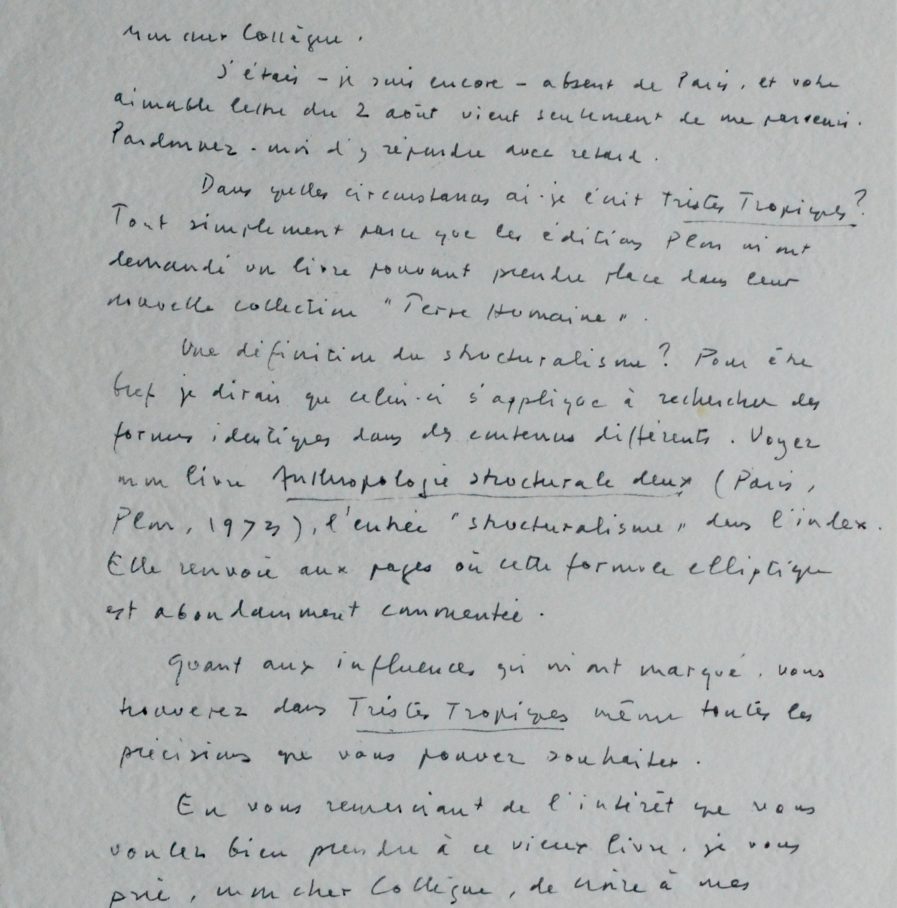 Mon cher Collègue.
J'étais – je suis encore – absent de Paris, et votre
aimable lettre du 2 août vient seulement de me parvenir.
Pardonnez-moi d'y répondre avec retard.
Dans quelles circonstances ai-je écrit Tristes Tropiques?
Tout simplement parce que les éditions Plon m'ont
demandé un livre pouvant prendre place dans leur
nouvelle collection "Terre Humaine".
Une définition du structuralisme? Pour être
bref je dirais que celui-ci s'applique à rechercher des
formes identiques dans des contenus différents. Voyez
mon livre Anthropologie structurale deux (Paris,
Plon, 1973), l'entrée "structuralisme" dans l'index.
Elle renvoie aux pages où cette formule elliptique
est abondamment commentée.
Quant aux influences qui m'ont marqué, vous
trouverez dans Tristes Tropiques même toutes les
précisions que vous pouvez souhaiter.
En vous remerciant de l'intérêt que vous
voulez bien prendre à ce vieux livre, je vous
prie, mon cher Collègue, de croire à mes